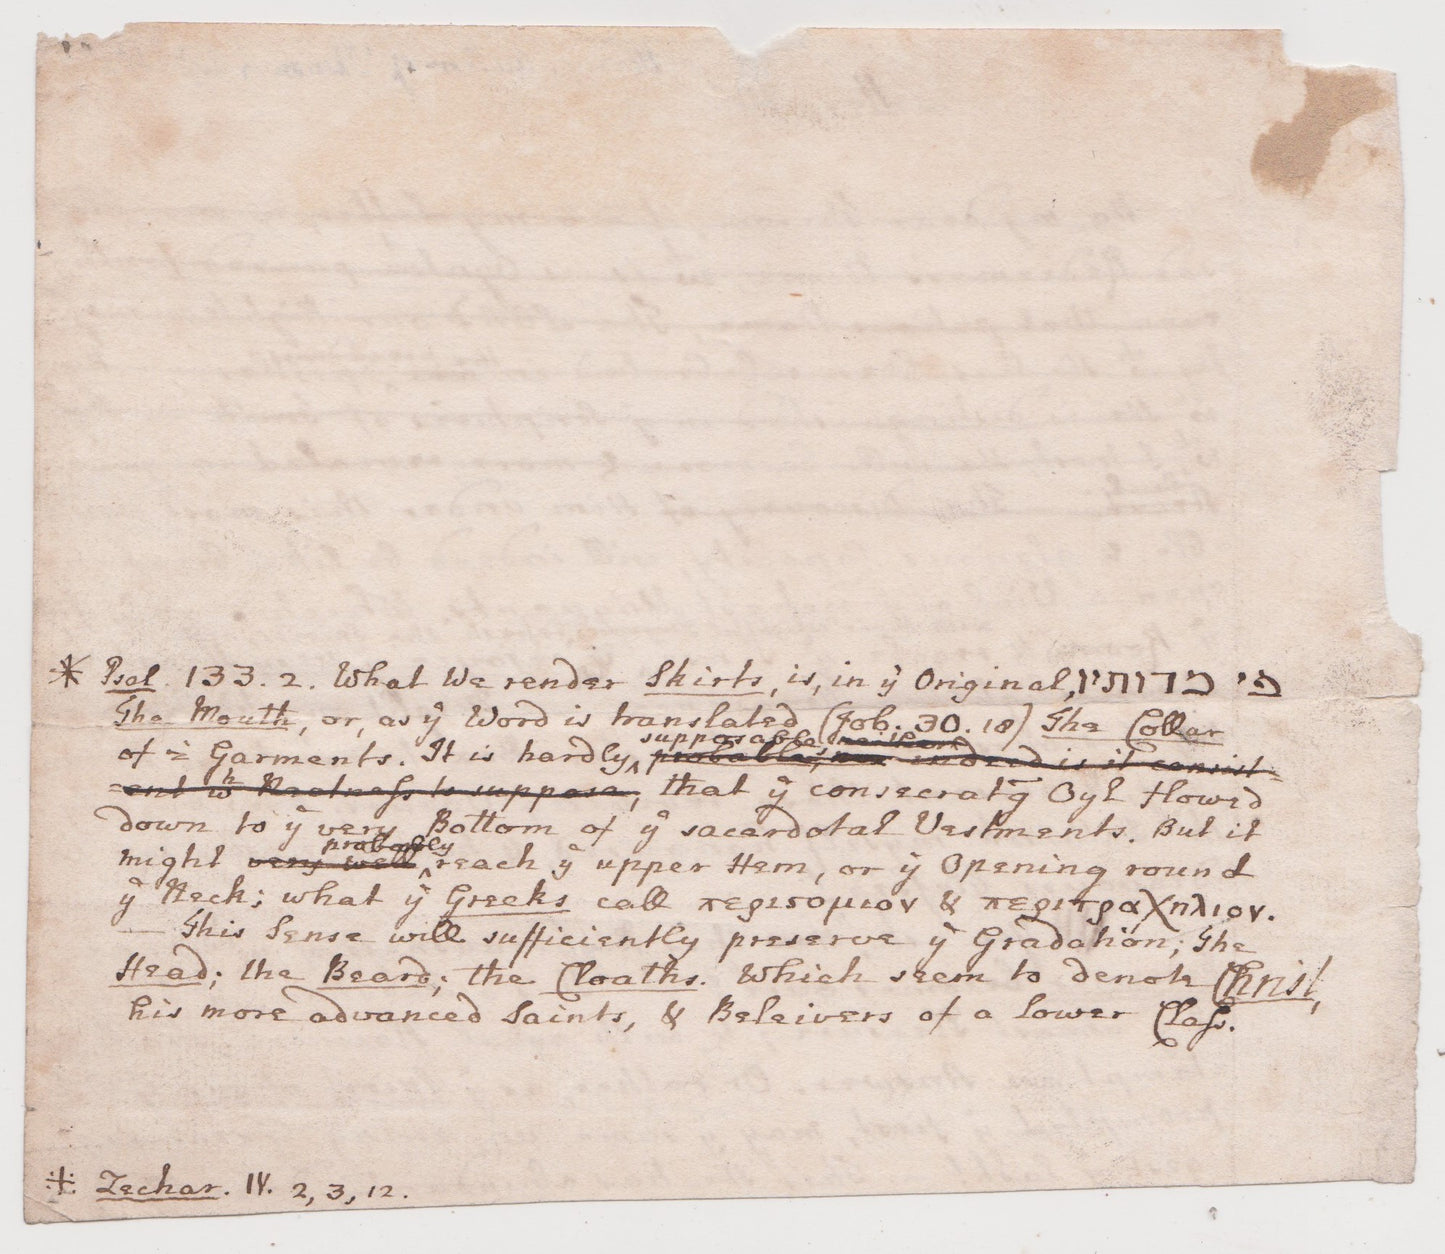 * Psal. 133. 2. What We render Skirts, is, in ẏ Original, פי מדותיו
The Mouth, or, as ẏ Word is translated (Job. 30. 18) The Collar
supposable
of Garments. It is hardly ‸ probable, nor indeed is it consist-
-ent wʰ Neatness to suppose, that ẏ consecratg̅ Oyl flowed
down to ẏ very Bottom of ẏ sacerdotal Vestments. But it
probably
might very well ‸ reach ẏ upper Hem, or ẏ Opening round
ẏ Neck; what ẏ Greeks call περιστομιον & περιτραχηλιον.
— This Sense will sufficiently preserve ẏ Gradation; The
Head; the Beard; the Cloaths. Which seem to denote Christ,
his more advanced Saints, & Beleivers of a lower Class.
⁜ Zechar. IV. 2, 3, 12.